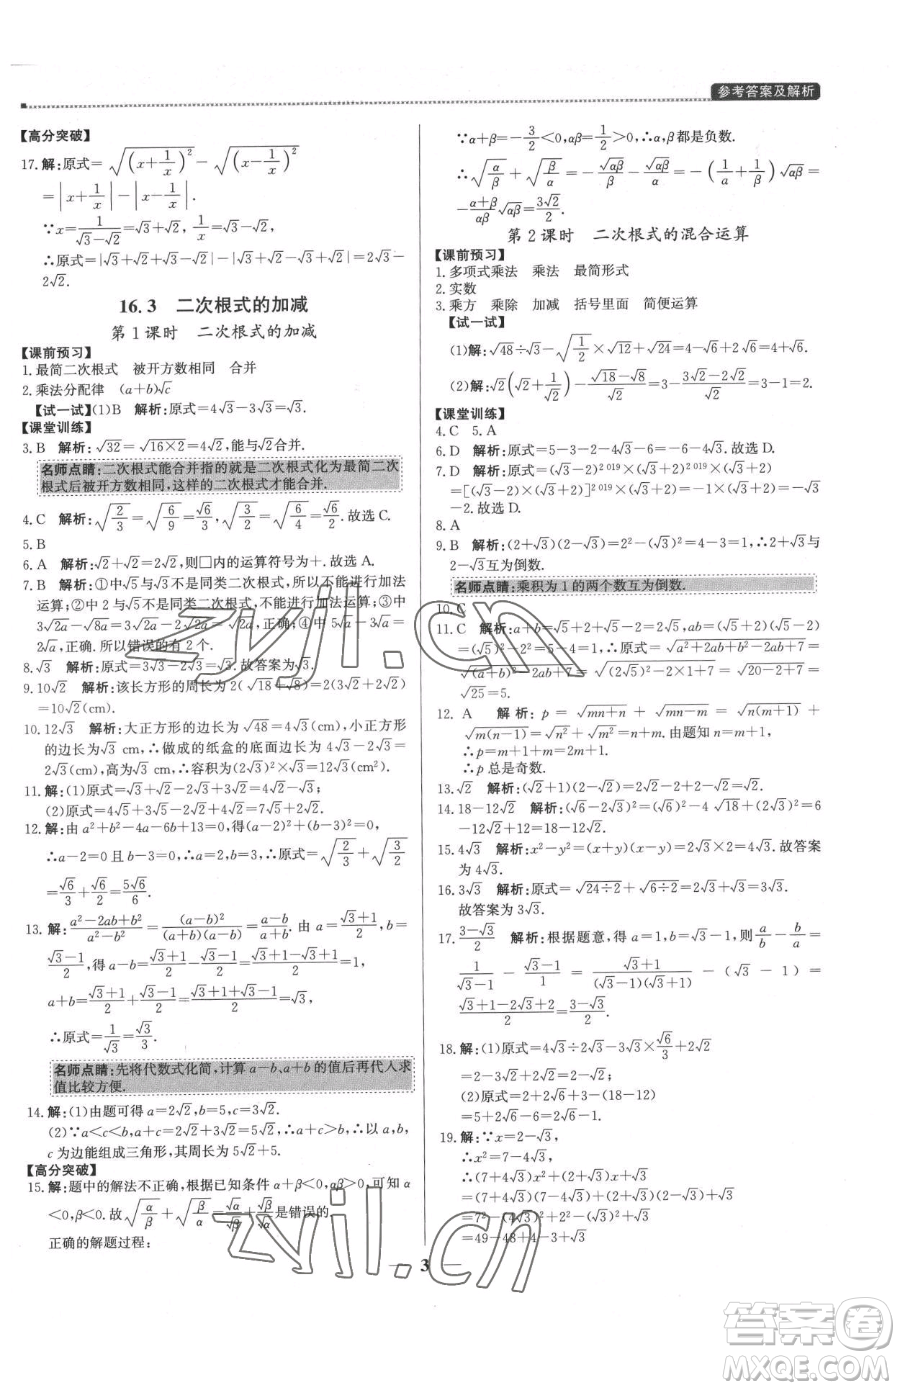 参考答案及解析
【高分突破】
17. 解:原式=√(x+1/x)²-√(x-1/x)²
=|x+1/x|-|x-1/x|.
∵x=1/(√3-√2)=√3+√2, 1/x=√3-√2,
∴原式=|√3+√2+√3-√2|-|√3+√2-√3+√2|=2√3-
2√2.
16.3 二次根式的加减
第1课时 二次根式的加减
【课前预习】
1. 最简二次根式 被开方数相同 合并
2. 乘法分配律 (a+b)√c
【试一试】(1)B 解析:原式=4√3-3√3=√3.
【课堂训练】
3. B 解析:√32=√16×2=4√2,能与√2合并.
名师点睛:二次根式能合并指的就是二次根式化为最简二次
根式后被开方数相同,这样的二次根式才能合并.
4. C 解析:√(2/3)=√(6/9)=√6/3, √(3/2)=√(6/4)=√6/2.故选C.
5. B
6. A 解析:√2+√2=2√2,则□内的运算符号为+.故选A.
7. B 解析:①中√2与√3不是同类二次根式,所以不能进行加法
运算;②中2与√2不是同类二次根式,不能进行加法运算;③中
3√2a-√8a=3√2a-2√2a=√2a,正确;④中5√a-3√a=
2√a,正确.所以错误的有2个.
8. √3 解析:原式=3√3-2√3=√3.故答案为√3.
9. 10√2 解析:该长方形的周长为2(√18+√8)=2(3√2+2√2)
=10√2(cm).
10. 12√3 解析:大正方形的边长为√48=4√3(cm),小正方形
的边长为√3 cm,∴做成的纸盒的底面边长为4√3-2√3=
2√3(cm),高为√3 cm,∴容积为(2√3)²×√3=12√3(cm³).
11. 解:(1)原式=2√3+3√3-√3=4√3;
(2)原式=4√5+3√5-2√2+4√2=7√5+2√2.
12. 解:由a²+b²-4a-6b+13=0,得(a-2)²+(b-3)²=0,
∴a-2=0且b-3=0,∴a=2,b=3,∴原式=√(2/3)+√(3/2)
=√6/3+√6/2=5√6/6.
13. 解:(a²-2ab+b²)/(a²-b²)=(a-b)²/((a+b)(a-b))=(a-b)/(a+b).由a=(√3+1)/2,b=
(√3-1)/2,得a-b=(√3+1)/2-(√3-1)/2=1,
a+b=(√3+1)/2+(√3-1)/2=√3,
∴原式=1/√3=√3/3.
名师点睛:先将代数式化简,计算a-b、a+b的值后再代入求
值比较方便.
14. 解:(1)由题可得a=2√2,b=5,c=3√2.
(2)∵a<c<b,a+c=2√2+3√2=5√2,∴a+c>b,∴以a,b,
c为边能组成三角形,其周长为5√2+5.
【高分突破】
15. 解:题中的解法不正确,根据已知条件α+β<0,αβ>0,可得α
<0,β<0.故√(α/β)+√(β/α)=√α/√β+√β/√α是错误的.
正确的解题过程:
∵α+β=-3/2<0,αβ=1/2>0,∴α,β都是负数.
∴√(α/β)+√(β/α)=-√αβ/β-√αβ/α=-(1/α+1/β)√αβ=
-(α+β)/αβ √αβ=3√2/2.
第2课时 二次根式的混合运算
【课前预习】
1. 多项式乘法 乘法 最简形式
2. 实数
3. 乘方 乘除 加减 括号里面 简便运算
【试一试】
(1)解:√48÷√3-√(1/2)×√12+√24=4-√6+2√6=4+√6.
(2)解:√2(√2+1/√2)-(√18-√8)/√2=2+1-(3√2-2√2)/√2=3-1=2.
【课堂训练】
4. C 5. A
6. D 解析:原式=2√3-5√3-4√3-6=-6-4√3.故选D.
7. D 解析:原式=(√3-2)(√3-2)²⁰¹⁹×(√3+2)²⁰¹⁹×(√3+2)
=[(√3-2)(√3+2)]²⁰¹⁹×(√3-2)(√3+2)=(-1)×(√3
-2.故选D.
8. A
9. B 解析:(2+√3)(2-√3)=2²-(√3)²=4-3=1,∴2+√3与
2-√3互为倒数.
名师点睛:乘积为1的两个数互为倒数.
10. C
11. C 解析:a+b=√5+2+√5-2=2√5,ab=(√5+2)(√5-2)
=(√5)²-2²=5-4=1.原式=√(a²+2ab+b²-2ab+7)=
√((a+b)²-2ab+7)=√((2√5)²-2×1+7)=√(20-2+7)=
√25=5.
12. A 解析:p=√(mn+n)+√(mn-m)=√(n(m+1))+
√(m(n-1)),∵m,n是两个连续自然数(m<n),由题知n=m+1,
∴p=m+1+m=2m+1.
∴p总是奇数.
13. √2 解析:(√2+1)(2-√2)=2√2-2+2-√2=√2.
14. 18-12√2 解析:(√6-2√3)²=6-4√18+(2√3)²=6
-12√2+12=18-12√2.
15. 4√3 解析:x²-y²=(x+y)(x-y)=2√3×2=4√3.故答案
为4√3.
16. 3√3 解析:原式=√24÷2+√6÷2=2√3+√3=3√3.
故答案为3√3.
17. (3-√3)/2 解析:根据题意,得a=1,b=√3-1,则a/b-b/a=
1/(√3-1)-(√3-1)/1=(√3+1)/((√3-1)(√3+1))-(√3-1)=
(√3+1-2√3+2)/2=(3-√3)/2.
18. 解:(1)原式=4√3÷2√3-3√3×√6/3+2√6
=2-3√2+2√6;
(2)原式=3+2√6+2-(18-12)
=5+2√6-6=2√6-1.
19. 解:∵x=2-√3,
∴x²=(2-√3)²=7-4√3,
∴(7+4√3)x²+(2+√3)x+√3
=(7+4√3)(7-4√3)+(2+√3)(2-√3)+√3
=7²-(4√3)²+2²-(√3)²+√3
=49-48+4-3+√3
=2+√3.
3
zyjl.cn
zyjl.cn
答案圈
MXQE.COM